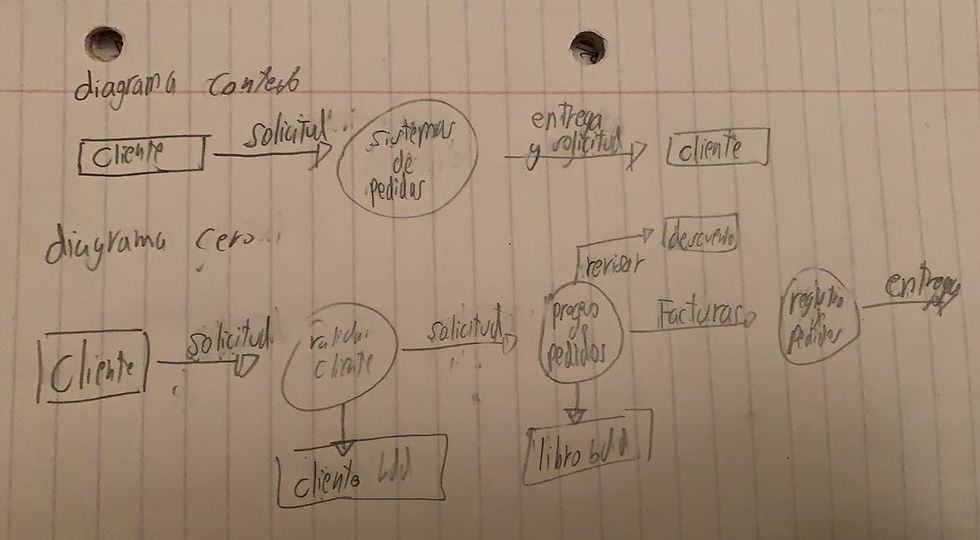 diagrama contexto
cliente
solicitud
sistemas
de
pedidos
entrega
y solicitud
cliente
diagrama cero
descuento
revisar
Cliente
solicitud
validar
cliente
solicitud
proceso
de
pedidos
Facturas
registro
de
pedidos
entrega
cliente bdd
libro bdd